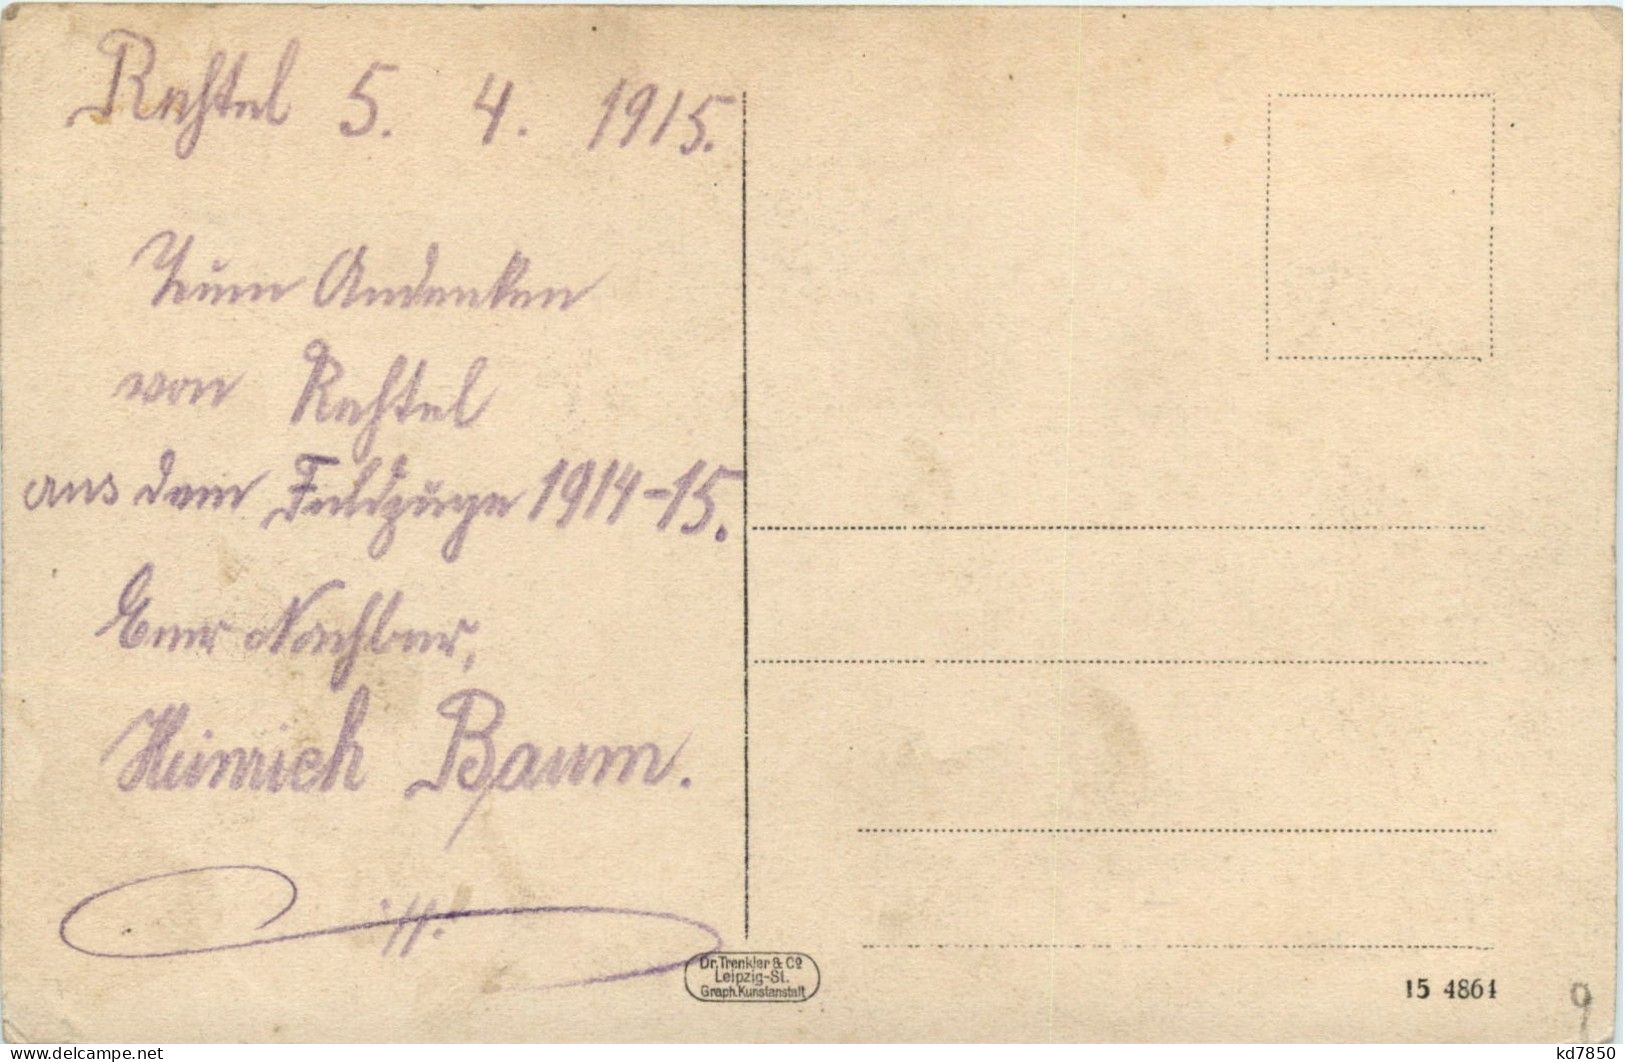 Rehtel 5. 4. 1915.
Zum Andenken
von Rehtel
aus dem Feldzuge 1914-15.
Euer Nachbar,
Heinrich Baum.
Dr. Trenkler & Co
Leipzig-St.
Graph. Kunstanstalt
15 4864
9
kd7850